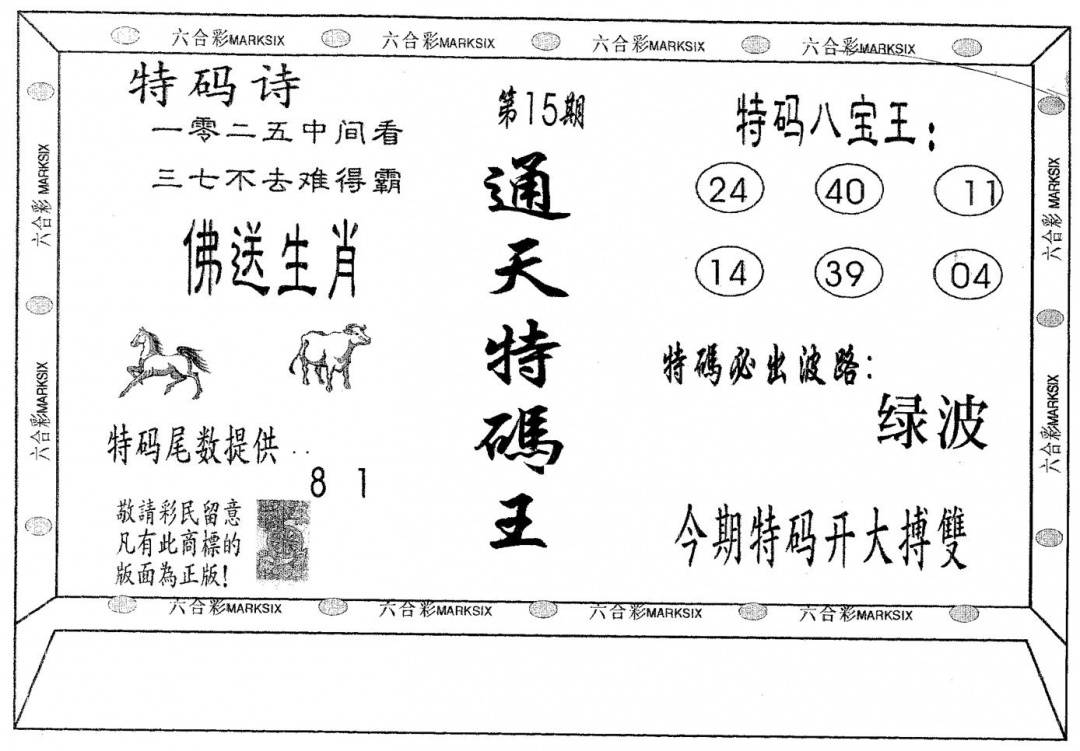 六合彩MARKSIX 六合彩MARKSIX 六合彩MARKSIX 六合彩MARKSIX
特码诗
一零二五中间看
三七不去难得霸
佛送生肖
特码尾数提供..
8 1
敬請彩民留意
凡有此商標的
版面為正版!
第15期
通天特碼王
特码八宝王:
24 40 11
14 39 04
特碼必出波路:
绿波
今期特码开大搏雙
六合彩 MARKSIX
六合彩MARKSIX
六合彩 MARKSIX
六合彩MARKSIX
六合彩MARKSIX 六合彩MARKSIX 六合彩MARKSIX 六合彩MARKSIX